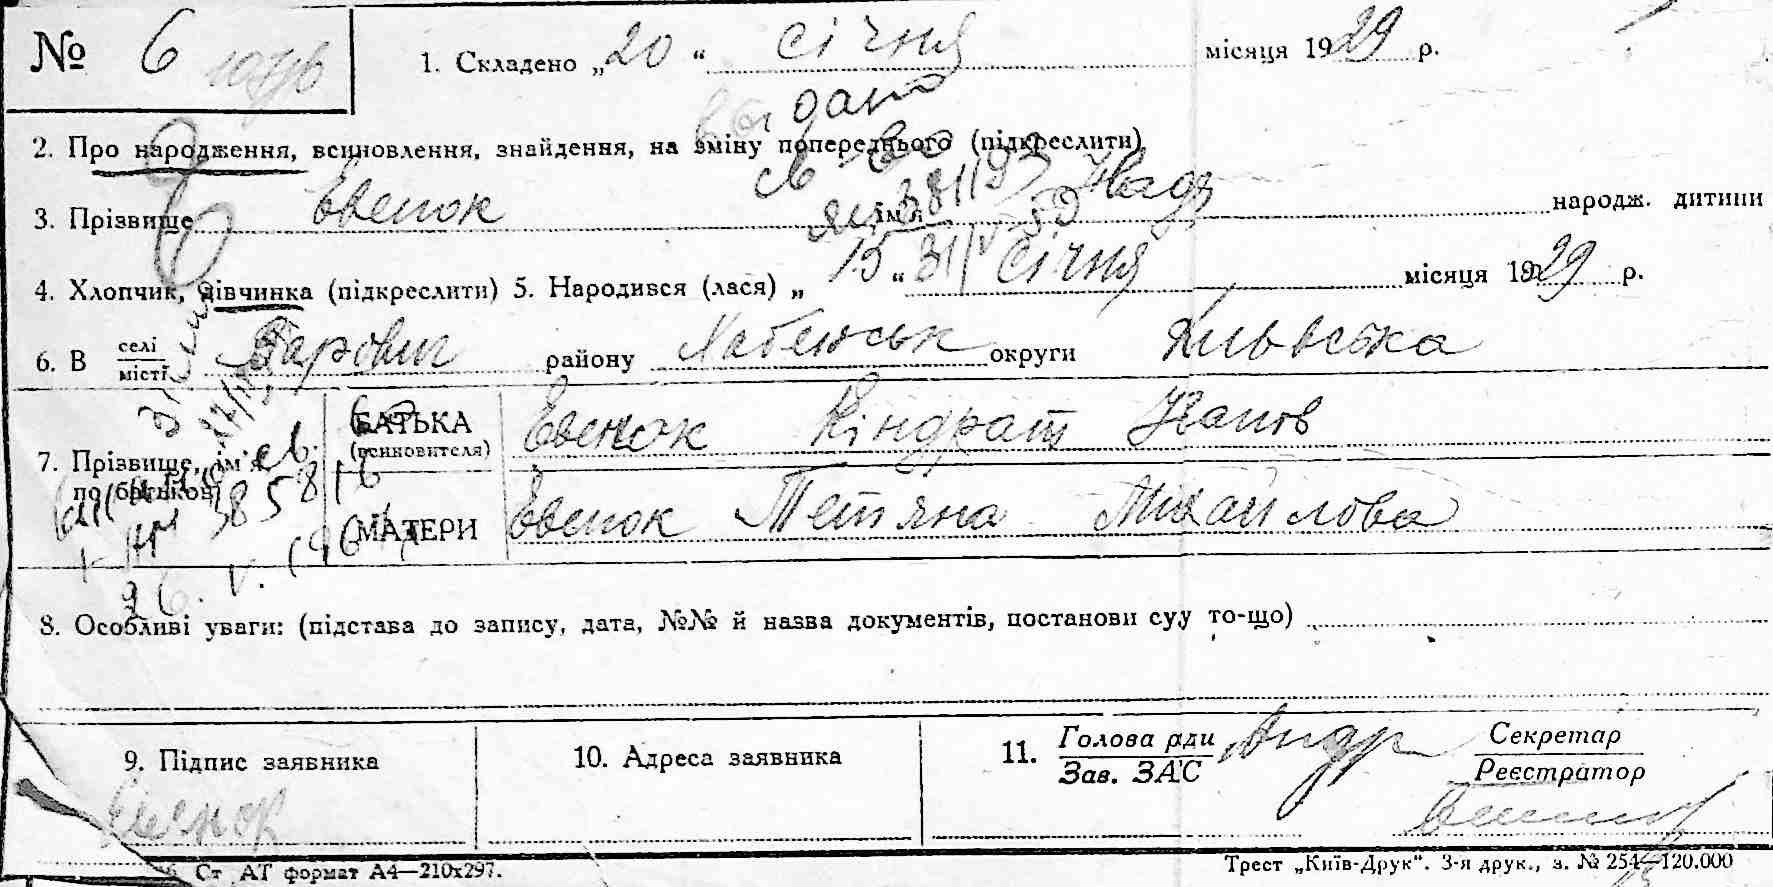 № 6
1. Складено „20“ січня місяця 1929 р.
2. Про народження, всиновлення, знайдення, на зміну попереднього (підкреслити)
3. Прізвище Евенок ім'я Надя народж. дитини
4. Хлопчик, дівчинка (підкреслити) 5. Народився (лася) „15“ січня місяця 1929 р.
6. В селі/місті Варовичі району Хабенськ округи Київська
7. Прізвище, ім'я, по батькові
БАТЬКА (всиновителя) Евенок Кіндрат Іванов
МАТЕРИ Евенок Тетяна Михайлова
8. Особливі уваги: (підстава до запису, дата, №№ й назва документів, постанови суду то-що)
9. Підпис заявника
10. Адреса заявника
11. Голова ради/Зав. ЗАС
Секретар/Реєстратор
Евенок
Ст АТ формат А4—210х297.
Трест „Київ-Друк“. 3-я друк., з. № 254—120.000